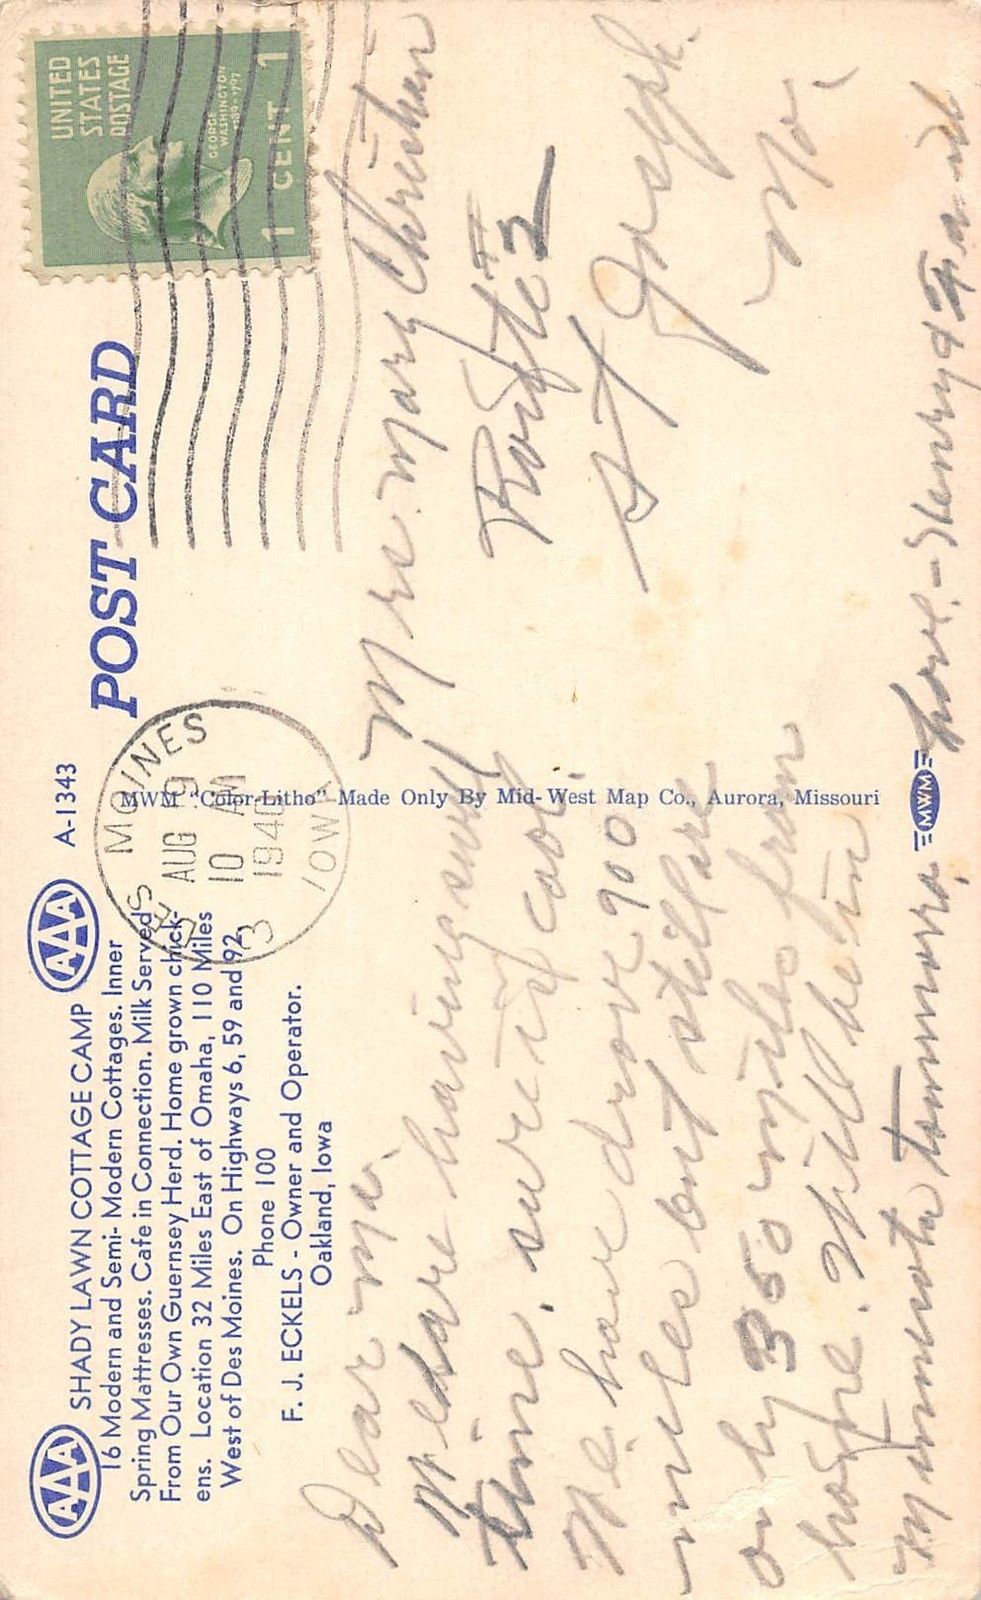 AAA SHADY LAWN COTTAGE CAMP AAA
A-1343
16 Modern and Semi-Modern Cottages. Inner
Spring Mattresses. Cafe in Connection. Milk Served
From Our Own Guernsey Herd. Home grown chick-
ens. Location 32 Miles East of Omaha, 110 Miles
West of Des Moines. On Highways 6, 59 and 92.
Phone 100
F. J. ECKELS - Owner and Operator.
Oakland, Iowa
POST CARD
DES MOINES
AUG 9
10 AM
1940
IOWA
3
UNITED
STATES
POSTAGE
GEORGE
WASHINGTON
1789-1797
1 CENT 1
Dear Ma.
We are having swell
time, sure is cool.
We have drove 900
miles but still are
only 350 miles from
home. Will be in
Minnesota tommora.
Love - Henry &
Mrs. Mary Christman
Route # 2
St Joseph.
Mo.
MWM "Color-Litho" Made Only By Mid-West Map Co., Aurora, Missouri
MWM